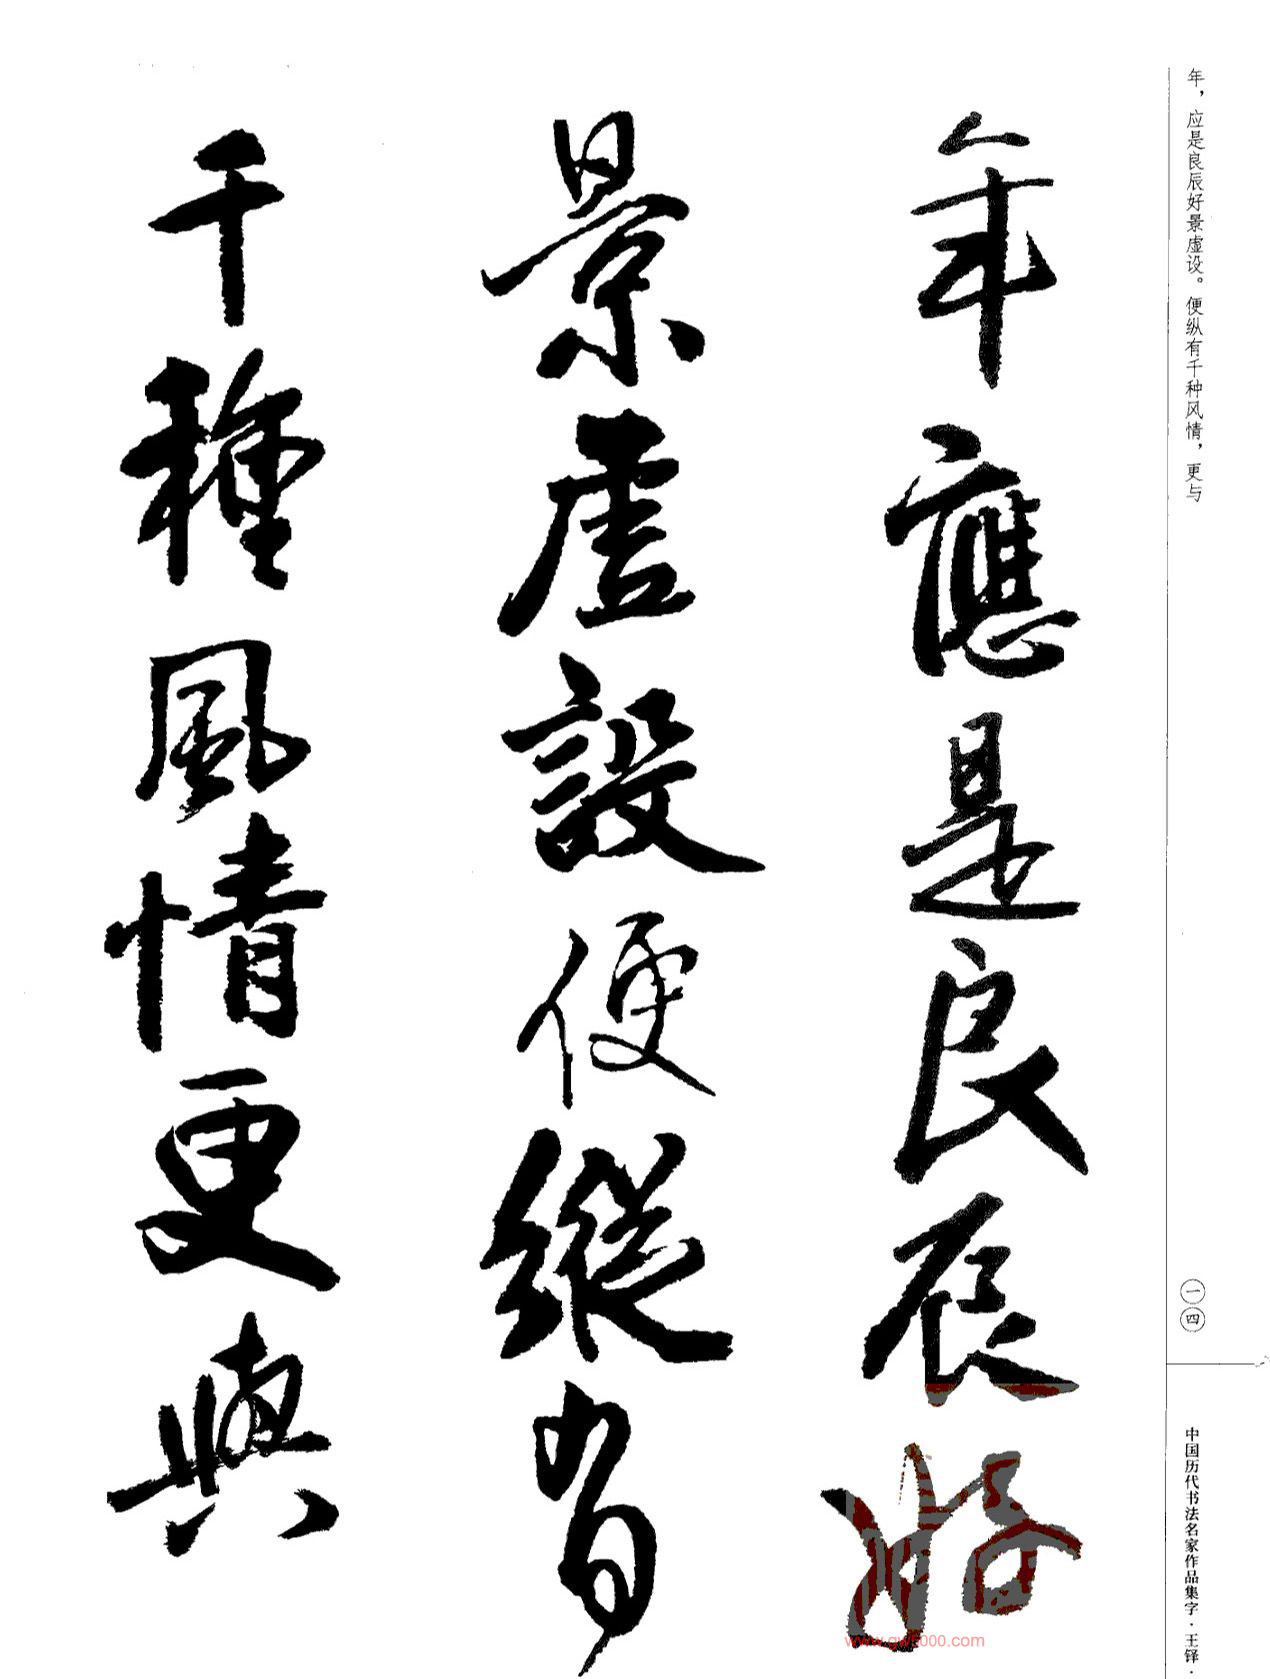 年，应是良辰好景虚设。便纵有千种风情，更与
年應是良辰好
景虛設便縱有
千種風情更與
一四
中国历代书法名家作品集字·王铎·
www.gw5000.com